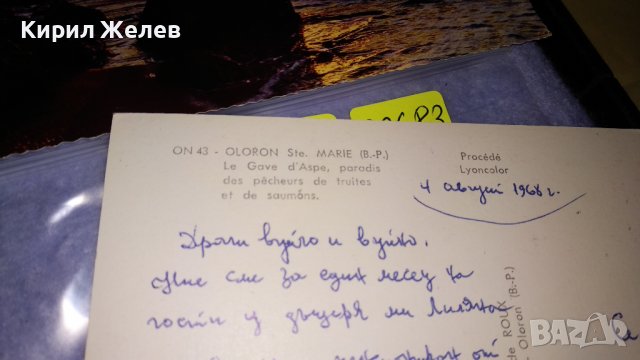 Кирил Желев
ON 43 - OLORON Ste. MARIE (B.-P.)
Le Gave d'Aspe, paradis
des pêcheurs de truites
et de saumons.
Procédé
Lyoncolor
4 август 1968 г.
Драги вуйчо и вуйно,
Ние сме за един месец на
гости у дъщеря ми
de ROUX
Oloron (B.-P.)
BAZAR
.bg